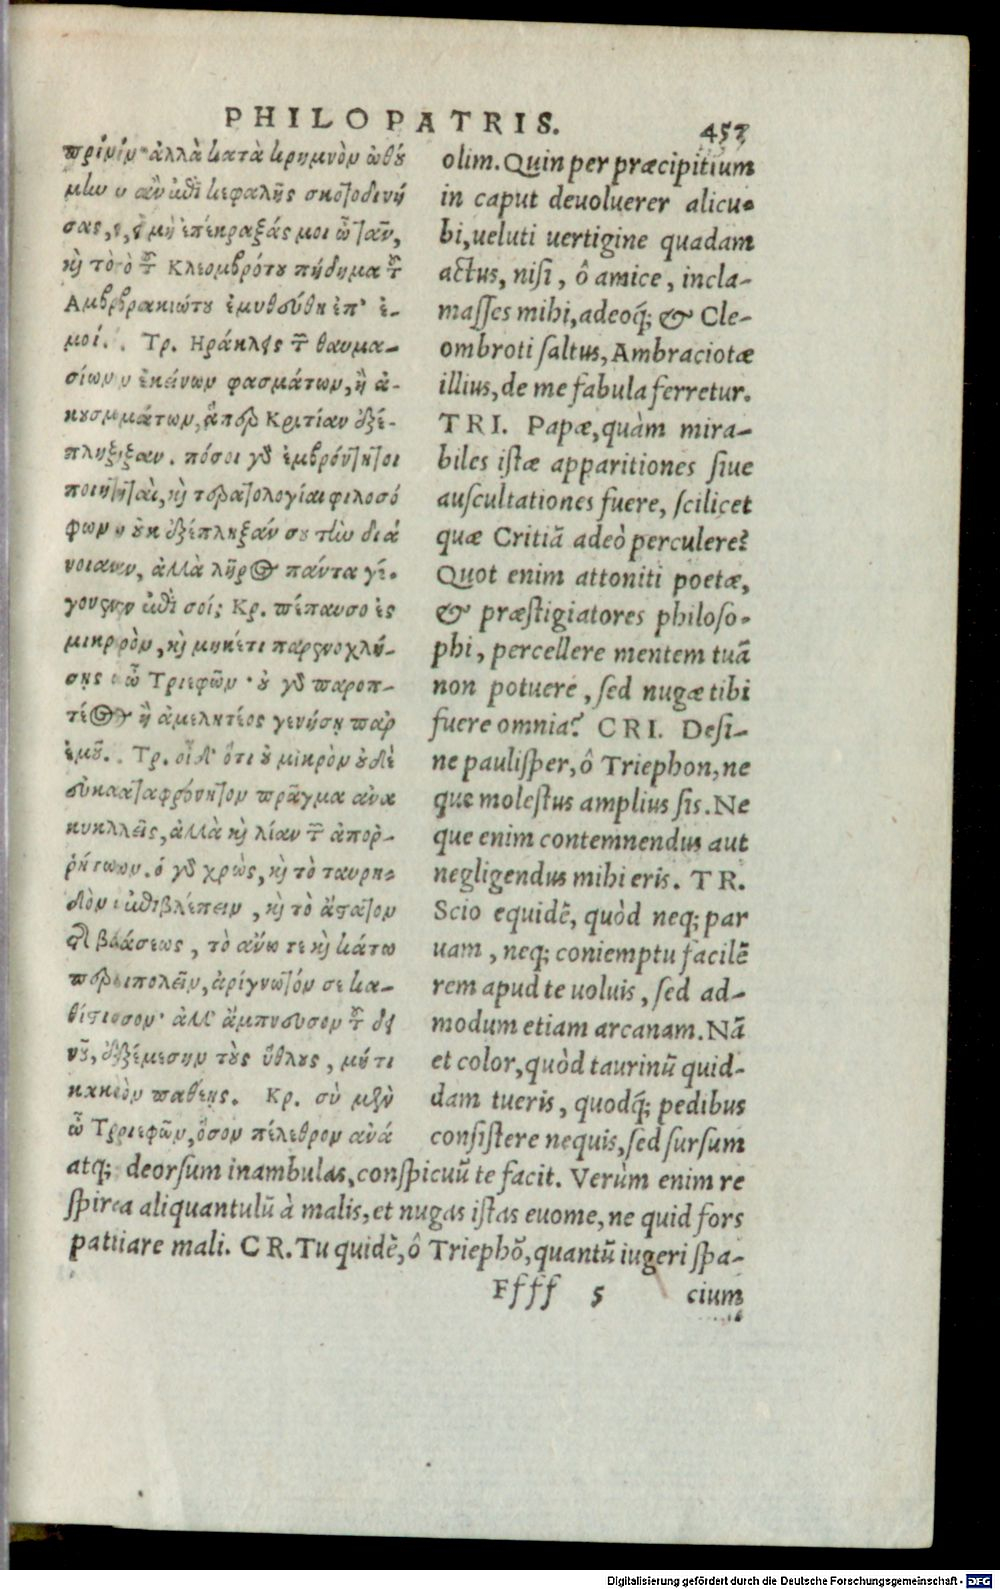 PHILOPATRIS.
457
πρίν· ἀλλὰ κατὰ κρημνὸν ὠθού
μην ἂν ἐπὶ κεφαλῆς σκοτοδινή
σας, εἰ μὴ ἐπέκραξάς μοι ὦ τᾶν,
καὶ τὸ τοῦ Κλεομβρότου πήδημα τοῦ
Αμβρακιώτου ἐμυθεύθη ἐπ' ἐ-
μοί. Τρ. Ηράκλεις τῶν θαυμα-
σίων ἐκείνων φασμάτων, ἢ ἀ-
κουσμάτων, ἅπερ Κριτίαν ἐξέ-
πληξαν. πόσοι γὰρ ἐμβρόντητοι
ποιηταὶ, καὶ τερατολογίαι φιλοσό
φων οὐκ ἐξέπληξάν σου τὴν διά
νοιαν, ἀλλὰ λῆρος πάντα γέ-
γονεν ἐπὶ σοί; Κρ. πέπαυσο ἐς
μικρὸν, καὶ μηκέτι παρενοχλή-
σῃς ὦ Τριεφῶν· οὐ γὰρ παροπ-
τέος ἢ ἀμελητέος γενήσῃ παρ
ἐμοῦ. Τρ. οἶδ' ὅτι οὐ μικρὸν οὐδὲ
εὐκαταφρόνητον πρᾶγμα ἀνα
κυκλεῖς, ἀλλὰ καὶ λίαν τῶν ἀποῤ-
ῥήτων. ὁ γὰρ χρὼς, καὶ τὸ ταυρη-
δὸν ἐπιβλέπειν, καὶ τὸ ἄστατον
τῆς βάσεως, τὸ ἄνω τε καὶ κάτω
περιπολεῖν, ἀρίγνωτόν σε κα-
θίστησιν· ἀλλ' ἄμπνευσον τοῦ δει
νοῦ, ἐξέμεσον τοὺς ὕθλους, μή τι
κακὸν παθῃς. Κρ. σὺ μὲν
ὦ Τριεφῶν, ὅσον πέλεθρον ἀνά
olim. Quin per præcipitium
in caput deuoluerer alicu-
bi, ueluti uertigine quadam
actus, nisi, ô amice, incla-
masses mihi, adeoq; & Cle-
ombroti saltus, Ambraciotæ
illius, de me fabula ferretur.
TRI. Papæ, quàm mira-
biles istæ apparitiones siue
auscultationes fuere, scilicet
quæ Critiã adeò perculere?
Quot enim attoniti poetæ,
& præstigiatores philoso-
phi, percellere mentem tuã
non potuere, sed nugæ tibi
fuere omnia? CRI. Desi-
ne paulisper, ô Triephon, ne
que molestus amplius sis. Ne
que enim contemnendus aut
negligendus mihi eris. TR.
Scio equidẽ, quòd neq; par
uam, neq; contemptu facilẽ
rem apud te uoluis, sed ad-
modum etiam arcanam. Nã
et color, quòd taurinũ quid-
dam tueris, quodq; pedibus
consistere nequis, sed sursum
atq; deorsum inambulas, conspicuũ te facit. Verùm enim re
spira aliquantulũ à malis, et nugas istas euome, ne quid fors
patiare mali. CR. Tu quidẽ, ô Triephõ, quantũ iugeri spa-
Ffff 5 cium
Digitalisierung gefördert durch die Deutsche Forschungsgemeinschaft - DFG